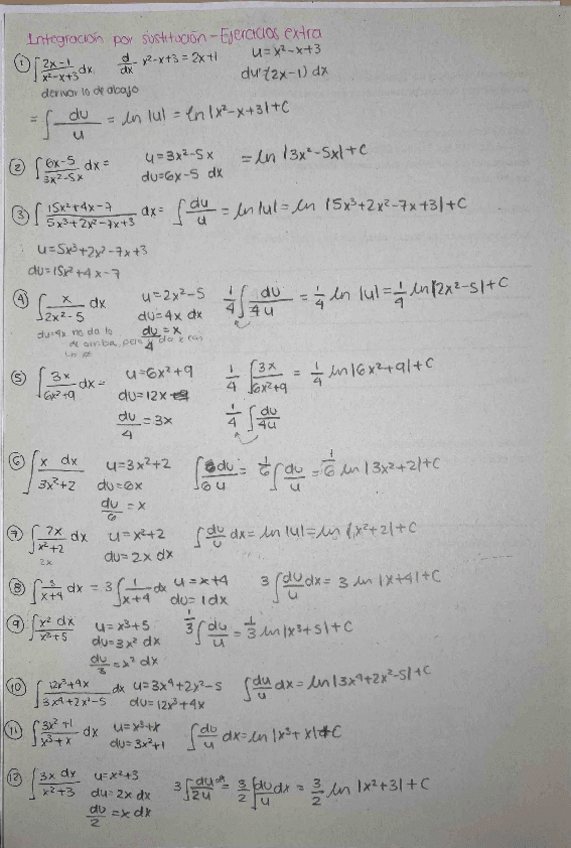 Integración por sustitución - Ejercicios extra
① ∫ 2x-1/x²-x+3 dx   d/dx x²-x+3 = 2x+1   u = x²-x+3
derivar lo de abajo   du = (2x-1) dx
= ∫ du/u = ln |u| = ln |x²-x+3| + C
② ∫ 6x-5/3x²-5x dx =   u = 3x²-5x   = ln |3x²-5x| + C
du = 6x-5 dx
③ ∫ 15x²+4x-7/5x³+2x²-7x+3 dx = ∫ du/u = ln |u| = ln |5x³+2x²-7x+3| + C
u = 5x³+2x²-7x+3
du = 15x²+4x-7
④ ∫ x/2x²-5 dx   u = 2x²-5   1/4 ∫ du/4u = 1/4 ln |u| = 1/4 ln |2x²-5| + C
du = 4x dx
du/4 = x
du=4x no da lo
de arriba, pero
⑤ ∫ 3x/6x²+9 dx =   u = 6x²+9   1/4 ∫ 3x/6x²+9 = 1/4 ln |6x²+9| + C
du = 12x
du/4 = 3x   1/4 ∫ du/4u
⑥ ∫ x dx/3x²+2   u = 3x²+2   ∫ du/6u = 1/6 ∫ du/u = 1/6 ln |3x²+2| + C
du = 6x
du/6 = x
⑦ ∫ 2x/x²+2 dx   u = x²+2   ∫ du/u dx = ln |u| = ln |x²+2| + C
2x   du = 2x dx
⑧ ∫ 3/x+4 dx = 3 ∫ 1/x+4 dx   u = x+4   3 ∫ du/u dx = 3 ln |x+4| + C
du = 1 dx
⑨ ∫ x² dx/x³+5   u = x³+5   1/3 ∫ du/u = 1/3 ln |x³+5| + C
du = 3x² dx
du/3 = x² dx
⑩ ∫ 12x³+4x/3x⁴+2x²-5 dx   u = 3x⁴+2x²-5   ∫ du/u dx = ln |3x⁴+2x²-5| + C
du = 12x³+4x
⑪ ∫ 3x²+1/x³+x dx   u = x³+x   ∫ du/u dx = ln |x³+x| + C
du = 3x²+1
⑫ ∫ 3x dx/x²+3   u = x²+3   3 ∫ du/2u dx = 3/2 ∫ du/u dx = 3/2 ln |x²+3| + C
du = 2x dx
du/2 = x dx